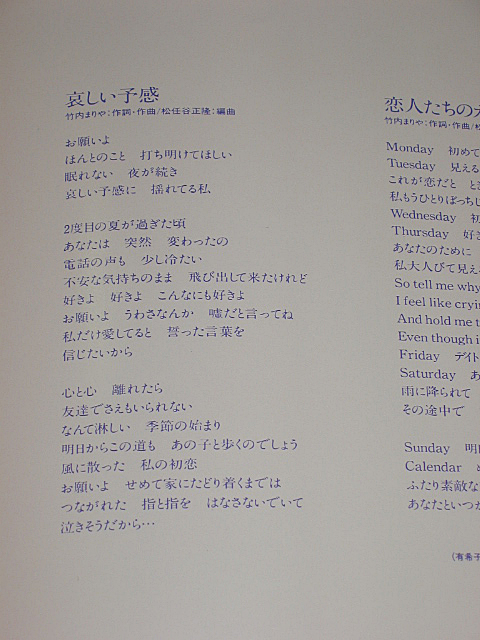 哀しい予感
竹内まりや:作詞・作曲/松任谷正隆:編曲
お願いよ
ほんとのこと 打ち明けてほしい
眠れない 夜が続き
哀しい予感に 揺れてる私
2度目の夏が過ぎた頃
あなたは 突然 変わったの
電話の声も 少し冷たい
不安な気持ちのまま 飛び出して来たけれど
好きよ 好きよ こんなにも好きよ
お願いよ うわさなんか 嘘だと言ってね
私だけ愛してると 誓った言葉を
信じたいから
心と心 離れたら
友達でさえもいられない
なんて淋しい 季節の始まり
明日からこの道も あの子と歩くのでしょう
風に散った 私の初恋
お願いよ せめて家にたどり着くまでは
つながれた 指と指を はなさないでいて
泣きそうだから…
恋人たちの
竹内まりや:作詞・作曲/
Monday 初めて
Tuesday 見える
これが恋だと
私もうひとりぼっち
Wednesday
Thursday 好き
あなたのために
私大人びて見え
So tell me why
I feel like cryin
And hold me t
Even though i
Friday デイト
Saturday あ
雨に降られて
その途中で
Sunday 明
Calendar
ふたり素敵な
あなたといつか
(有希子